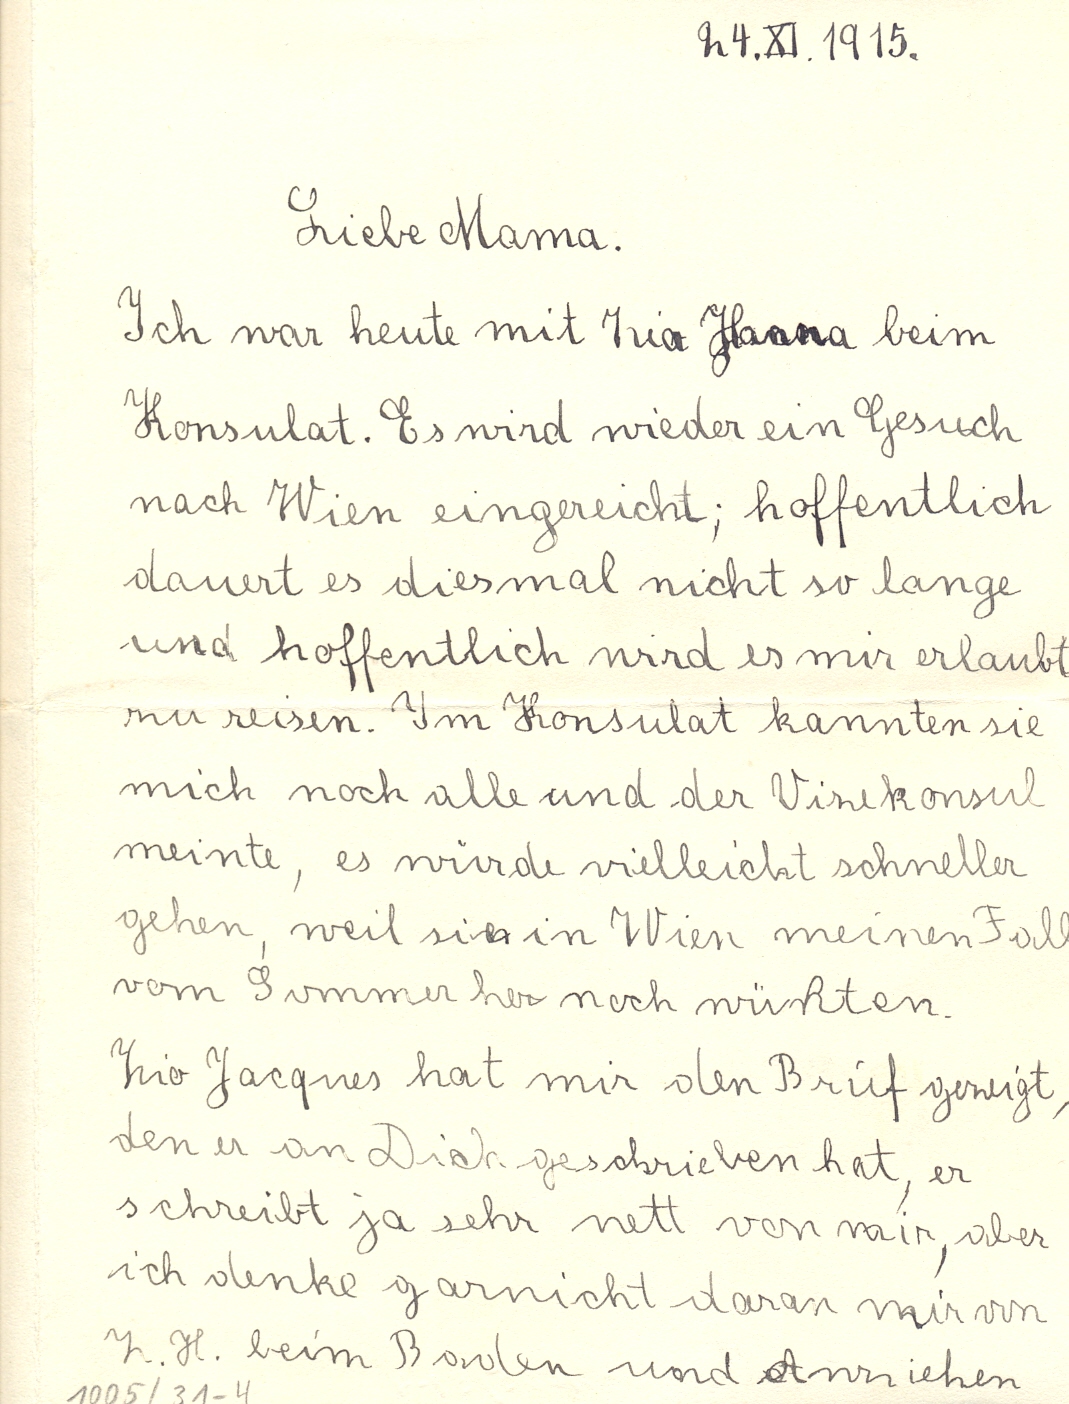 24.XI.1915.
Liebe Mama.
Ich war heute mit Zia Hanna beim
Konsulat. Es wird wieder ein Gesuch
nach Wien eingereicht; hoffentlich
dauert es diesmal nicht so lange
und hoffentlich wird es mir erlaubt
zu reisen. Im Konsulat kannten sie
mich noch alle und der Vizekonsul
meinte, es würde vielleicht schneller
gehen, weil sie in Wien meinen Fall
vom Sommer her noch wüßten.
Zio Jacques hat mir den Brief gezeigt,
den er an Dich geschrieben hat, er
schreibt ja sehr nett von mir, aber
ich denke garnicht daran mir von
Z. H. beim Baden und Anziehen
1005/31-4